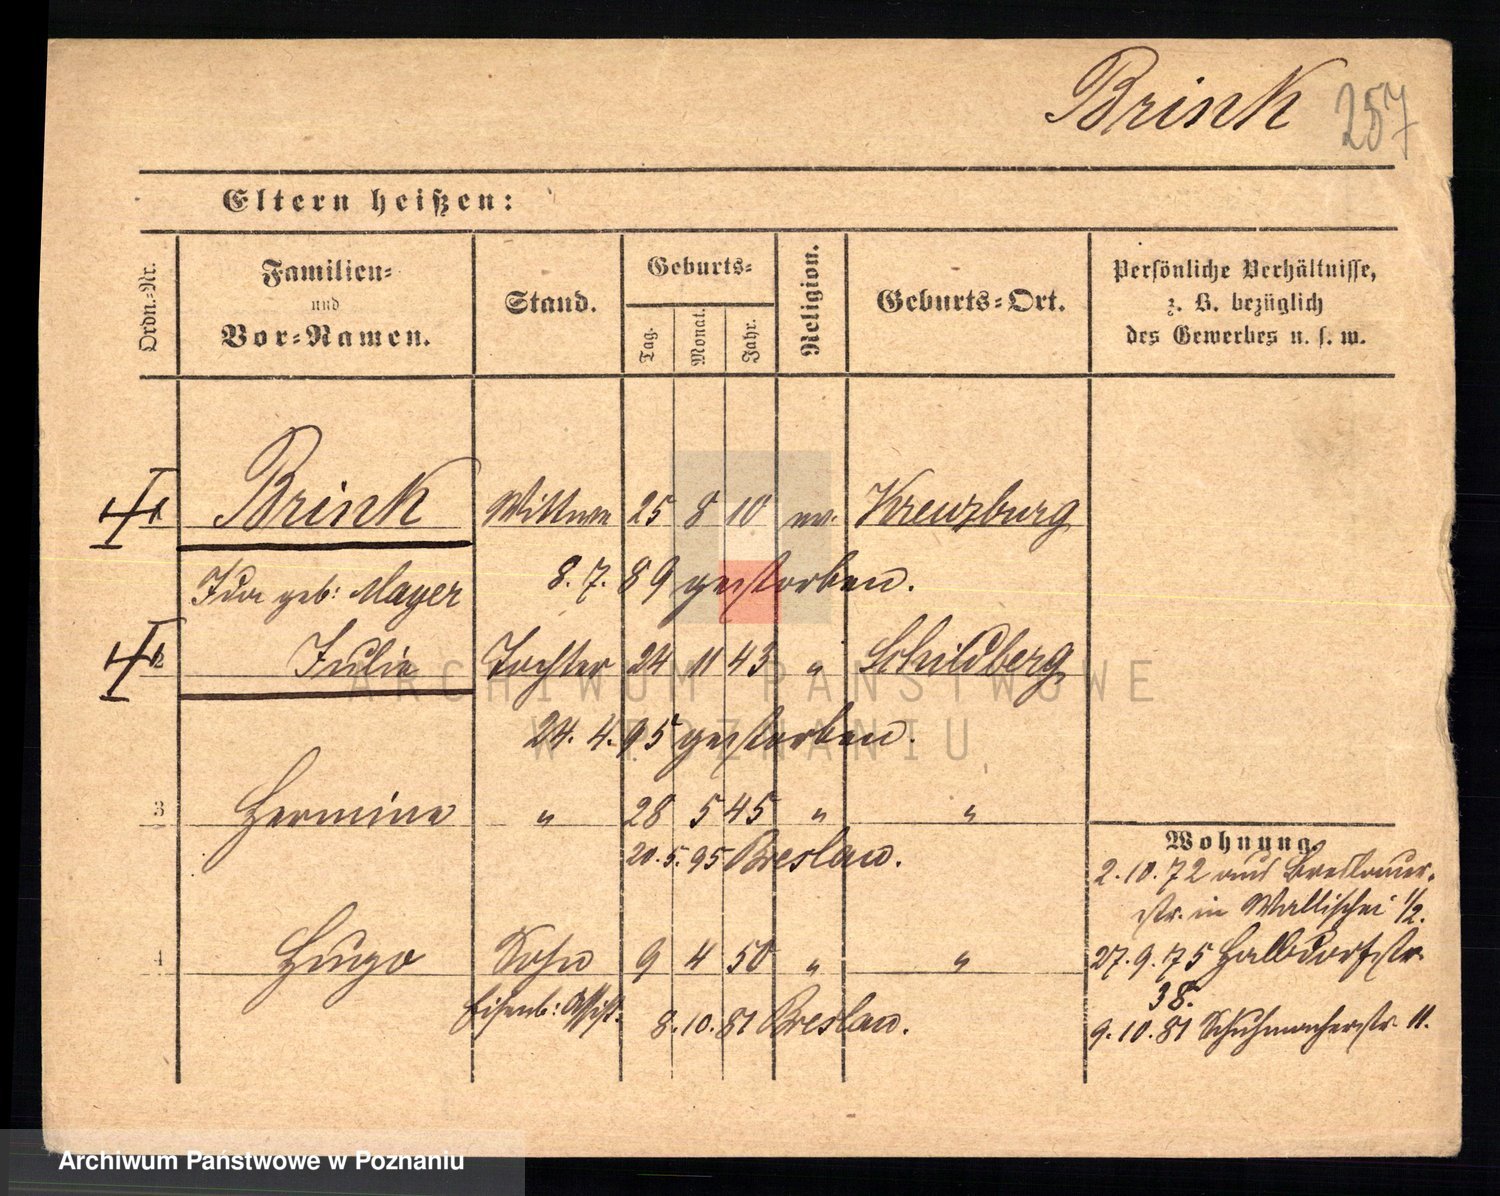 Brink 257
Eltern heißen:
Ordn.-Nr.
Familien-
und
Vor-Namen.
Stand.
Geburts-
Tag.
Monat.
Jahr.
Religion.
Geburts-Ort.
Persönliche Verhältnisse,
z. B. bezüglich
des Gewerbes u. s. w.
1 Brink Wittwe 25 8 10 ev. Kreuzburg
Ida geb: Mayer 8. 7. 89 gestorben.
2 Julie Tochter 24 11 43 " Schildberg
24. 4. 95 gestorben.
3 Hermine " 28 5 45 " "
20. 5. 95 Breslau.
4 Hugo Sohn 9 4 50 " "
Eisenb: Assist. 8. 10. 81 Breslau.
Wohnung.
2. 10. 72 aus Breslauer-
str. in Wallischei 1/2.
27. 9. 75 Halbdorfstr.
38.
9. 10. 81 Schuhmacherstr. 11.
ARCHIWUM PAŃSTWOWE
W POZNANIU
Archiwum Państwowe w Poznaniu